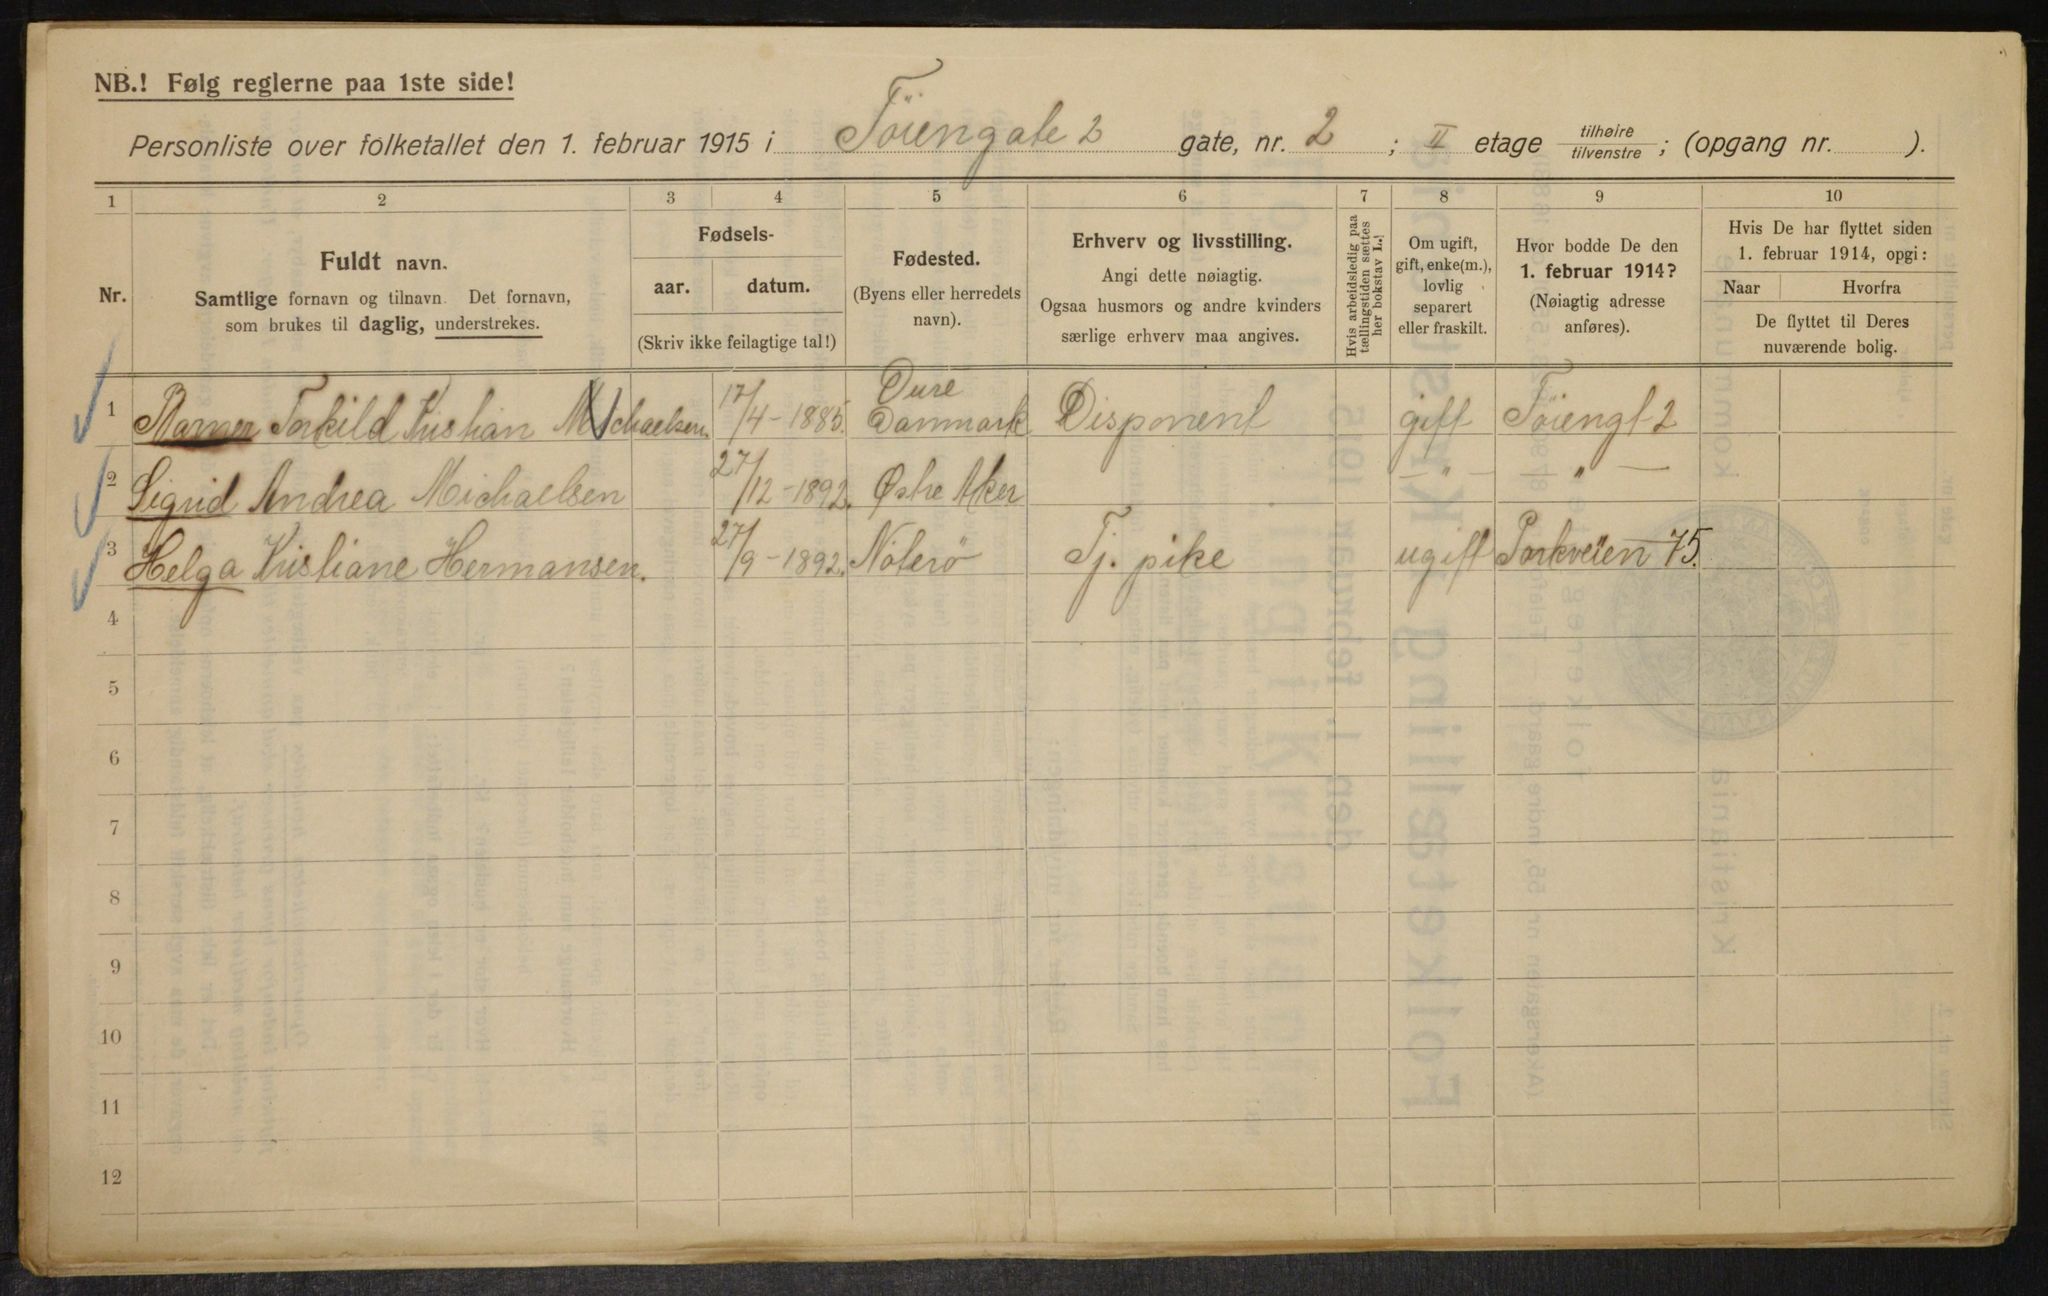 NB.! Følg reglerne paa 1ste side!
Personliste over folketallet den 1. februar 1915 i Töiengate 2 gate, nr. 2 ; II etage tilhøire / tilvenstre ; (opgang nr. ).
1 2 3 4 5 6 7 8 9 10
Nr.
Fuldt navn.
Samtlige fornavn og tilnavn. Det fornavn,
som brukes til daglig, understrekes.
Fødsels-
aar. datum.
(Skriv ikke feilagtige tal!)
Fødested.
(Byens eller herredets
navn).
Erhverv og livsstilling.
Angi dette nøiagtig.
Ogsaa husmors og andre kvinders
særlige erhverv maa angives.
Hvis arbeidsledig paa
tællingstiden sættes
her bokstav L.!
Om ugift,
gift, enke(m.),
lovlig
separert
eller fraskilt.
Hvor bodde De den
1. februar 1914?
(Nøiagtig adresse
anføres).
Hvis De har flyttet siden
1. februar 1914, opgi:
Naar Hvorfra
De flyttet til Deres
nuværende bolig.
1 Torkild Kristian Michaelsen. 17/4-1885. Dure Danmark Disponent gift Töiengt 2
2 Sigrid Andrea Michaelsen 27/12-1892. Østre Aker " — " —
3 Helga Kristiane Hermansen. 27/9-1892. Nöterö Tj. pike ugift Parkveien 75.
4
5
6
7
8
9
10
11
12